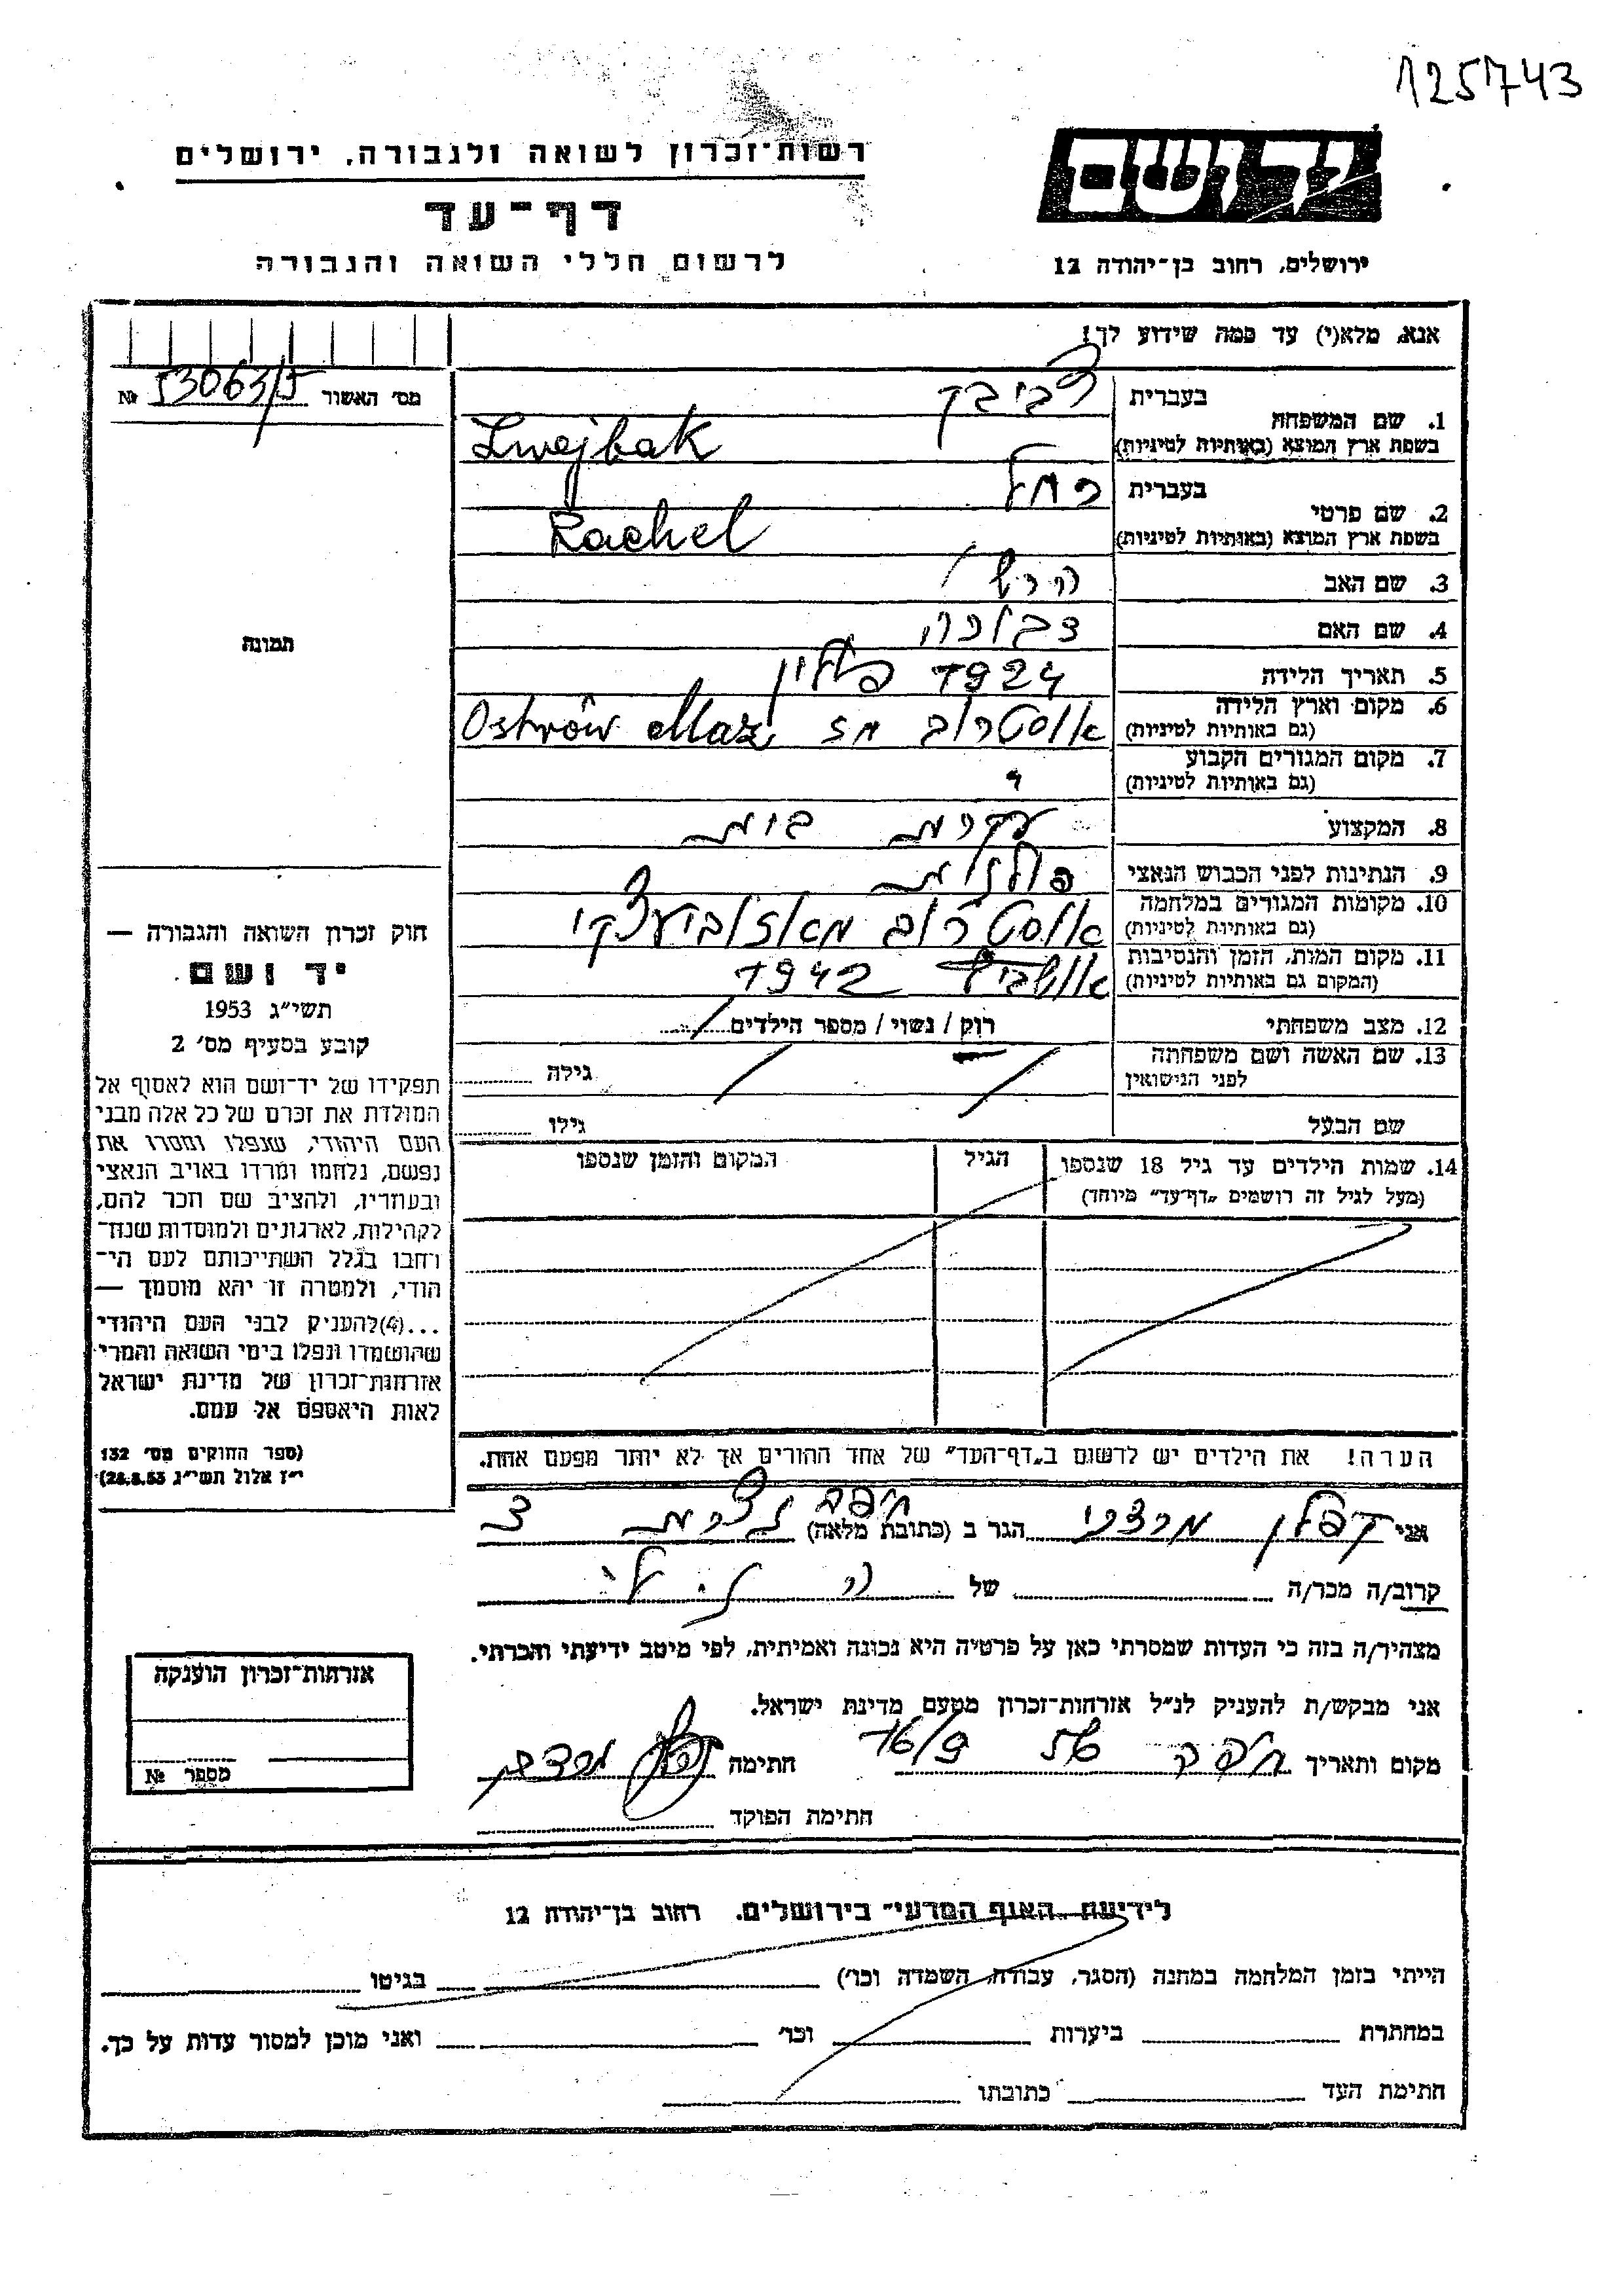 125743
יד ושם
רשות־זכרון לשואה ולגבורה, ירושלים
דף־עד
לרשום חללי השואה והגבורה
ירושלים, רחוב בן־יהודה 12
אנא, מלא(י) עד כמה שידוע לך!
מס׳ האשור 53063/5 №
תמונה
1. שם המשפחה
בעברית
בשפת ארץ המוצא (באותיות לטיניות) Zwejbak
2. שם פרטי
בעברית רחל
בשפת ארץ המוצא (באותיות לטיניות) Rachel
3. שם האב הרש
4. שם האם
5. תאריך הלידה 1924 פולין
6. מקום וארץ הלידה
(גם באותיות לטיניות) אוסטרוב מז Ostrów Maz
7. מקום המגורים הקבוע
(גם באותיות לטיניות) "
8. המקצוע עקרת בית
9. הנתינות לפני הכבוש הנאצי פולנית
10. מקומות המגורים במלחמה
(גם באותיות לטיניות) אוסטרוב מאזוביעצקי
11. מקום המות, הזמן והנסיבות
(המקום גם באותיות לטיניות) אושביץ 1942
12. מצב משפחתי רווק / נשוי / מספר הילדים
13. שם האשה ושם משפחתה
לפני הנישואין גילה
שם הבעל גילו
14. שמות הילדים עד גיל 18 שנספו הגיל המקום והזמן שנספו
(מעל לגיל זה רושמים „דף־עד” מיוחד)
חוק זכרון השואה והגבורה —
יד ושם
תשי״ג 1953
קובע בסעיף מס׳ 2
תפקידו של יד־ושם הוא לאסוף אל
המולדת את זכרם של כל אלה מבני
העם היהודי, שנפלו ומסרו את
נפשם, נלחמו ומרדו באויב הנאצי
ובעוזריו, ולהציב שם וזכר להם,
לקהילות, לארגונים ולמוסדות שנח־
רבו בגלל השתייכותם לעם הי־
הודי, ולמטרה זו יהא מוסמך —
...(4) להעניק לבני העם היהודי
שהושמדו ונפלו בימי השואה והמרי
אזרחות־זכרון של מדינת ישראל
לאות היאספם אל עמם.
(ספר החוקים מס׳ 132
י״ז אלול תשי״ג 28.8.53)
הערה! את הילדים יש לרשום ב„דף־העד” של אחד ההורים אך לא יותר מפעם אחת.
אני קפלן מרדכי הגר ב (כתובת מלאה) חיפה
קרוב/ה מכר/ה של
מצהיר/ה בזה כי העדות שמסרתי כאן על פרטיה היא נכונה ואמיתית, לפי מיטב ידיעתי והכרתי.
אני מבקש/ת להעניק לנ״ל אזרחות־זכרון מטעם מדינת ישראל.
מקום ותאריך חיפה 16/9 56 חתימה קפלן מרדכי
חתימת הפוקד
אזרחות־זכרון הוענקה
מספר №
לידיעת „האגף המדעי” בירושלים, רחוב בן־יהודה 12
הייתי בזמן המלחמה במחנה (הסגר, עבודה, השמדה וכו׳) בגיטו
במחתרת ביערות וכו׳ ואני מוכן למסור עדות על כך.
חתימת העד כתובתו